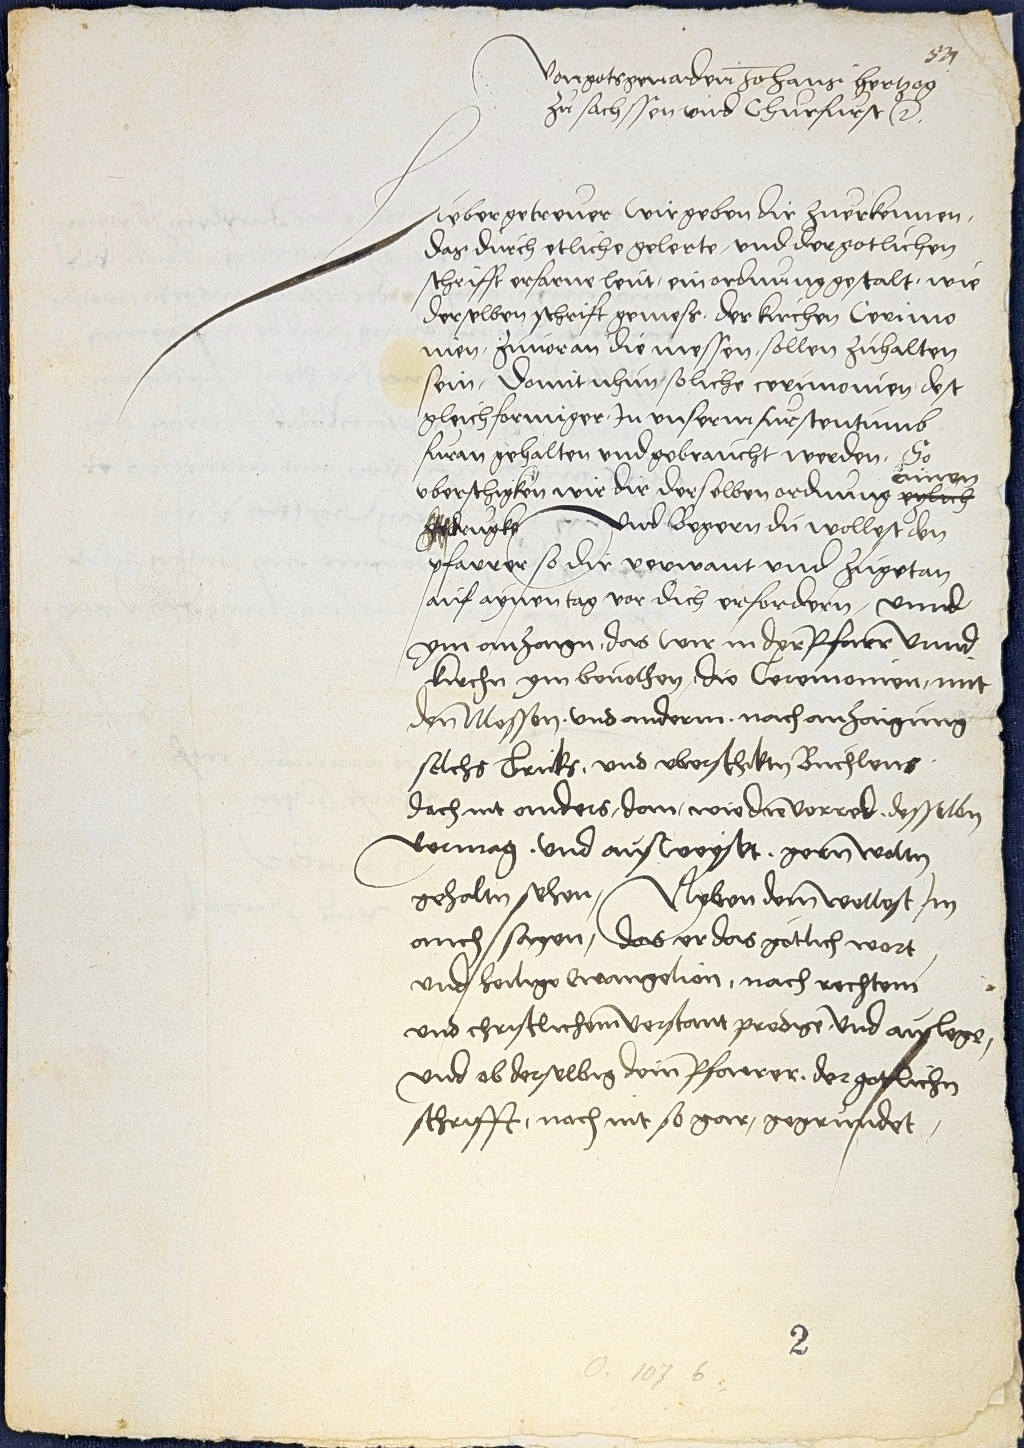 Von gots genaden Johans hertzog
zu sachssen und Churfurst ⁊c.
Lieber getreuer wir geben dir zuerkennen,
das durch etliche gelerte, und der gotlichen
schrifft erfarne leut, ein ordnung gestalt, wie
derselben schrift gemess, der kirchen Cerimo
nien, zuuoran die messen, sollen zuhalten
sein, Domit nhun soliche cerimonien dest
gleichformiger In unserm furstentumb
furan gehalten und gebraucht werden, So
einen
uberschigken wir dir derselben ordnung
gedrugkt Und Begern du wollest den
pfarrer so dir verwant und zugetan
auf aynen tag vor dich erfordern, unnd
ym anzaign, das wir in der Pfarr unnd
kirchn ym bevolhen, die Ceremonien, mit
den Messen, und anderm, nach anzaigung
solchs Truks, und uberschiktn Buchlens
doch nit anders, dan, wie die vorred, desselbn
vermag, und ausweyset, gern woltn
gehaltn sehen, Neben dem wollest im
auch sagen, das er das gotlich wort,
und heilige Evangelion, nach rechtem
und christlichem verstant predige und auslege,
und ob derselbig dein Pfarrer, der gotlichn
schrifft, noch nit so gar, gegrundet,
2
O. 107 6